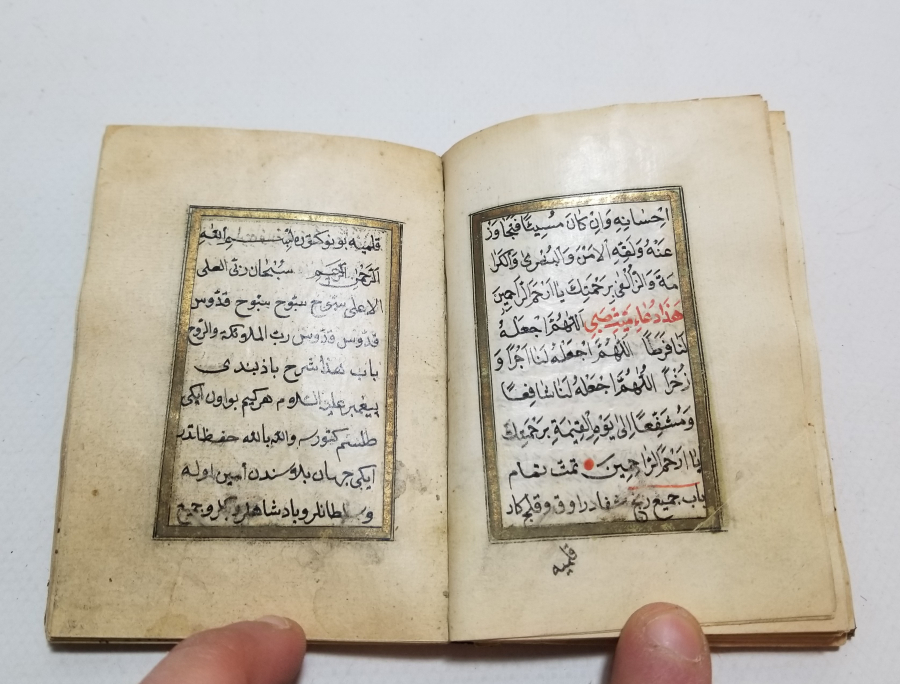 احِسَانِهِ وَاِنْ كَانَ مُسِيئًا فَتَجَاوَزْ
عَنْهُ وَلَقِّهِ الْاَمْنَ وَالْبُشْرٰى وَالْكَرَا
مَةَ وَالزُّلْفٰى بِرَحْمَتِكَ يَا اَرْحَمَ الرَّاحِمِينَ
هَذَا دُعَاءِ مَيِّتِ صَبِي اَللّٰهُمَّ اجْعَلْهُ
لَنَا فَرَطًا اَللّٰهُمَّ اجْعَلْهُ لَنَا اَجْرًا وَ
ذُخْرًا اَللّٰهُمَّ اجْعَلْهُ لَنَا شَافِعًا
وَمُشَفَّعًا اِلٰى يَوْمِ الْقِيٰمَةِ بِرَحْمَتِكَ
يَا اَرْحَمَ الرَّاحِمِينَ تمت تمام
باب جميع شفادر اوقو
قلميه
قلميه بسم الله
الرحمن الرحيم سبحان ربى العلى
الاعلى سبوح سبوح سبوح قدّوس
قدّوس قدّوس رب الملائكة والروح
باب هذا شرح باذبندى
پيغمبر عليه السلام هر كيم بو اون ايكى
طلسم كتورسه والله بالله
ايكى جهان بلاسندن امين اوله
وسلطانلر وپادشاهلر وبكلر وجميع